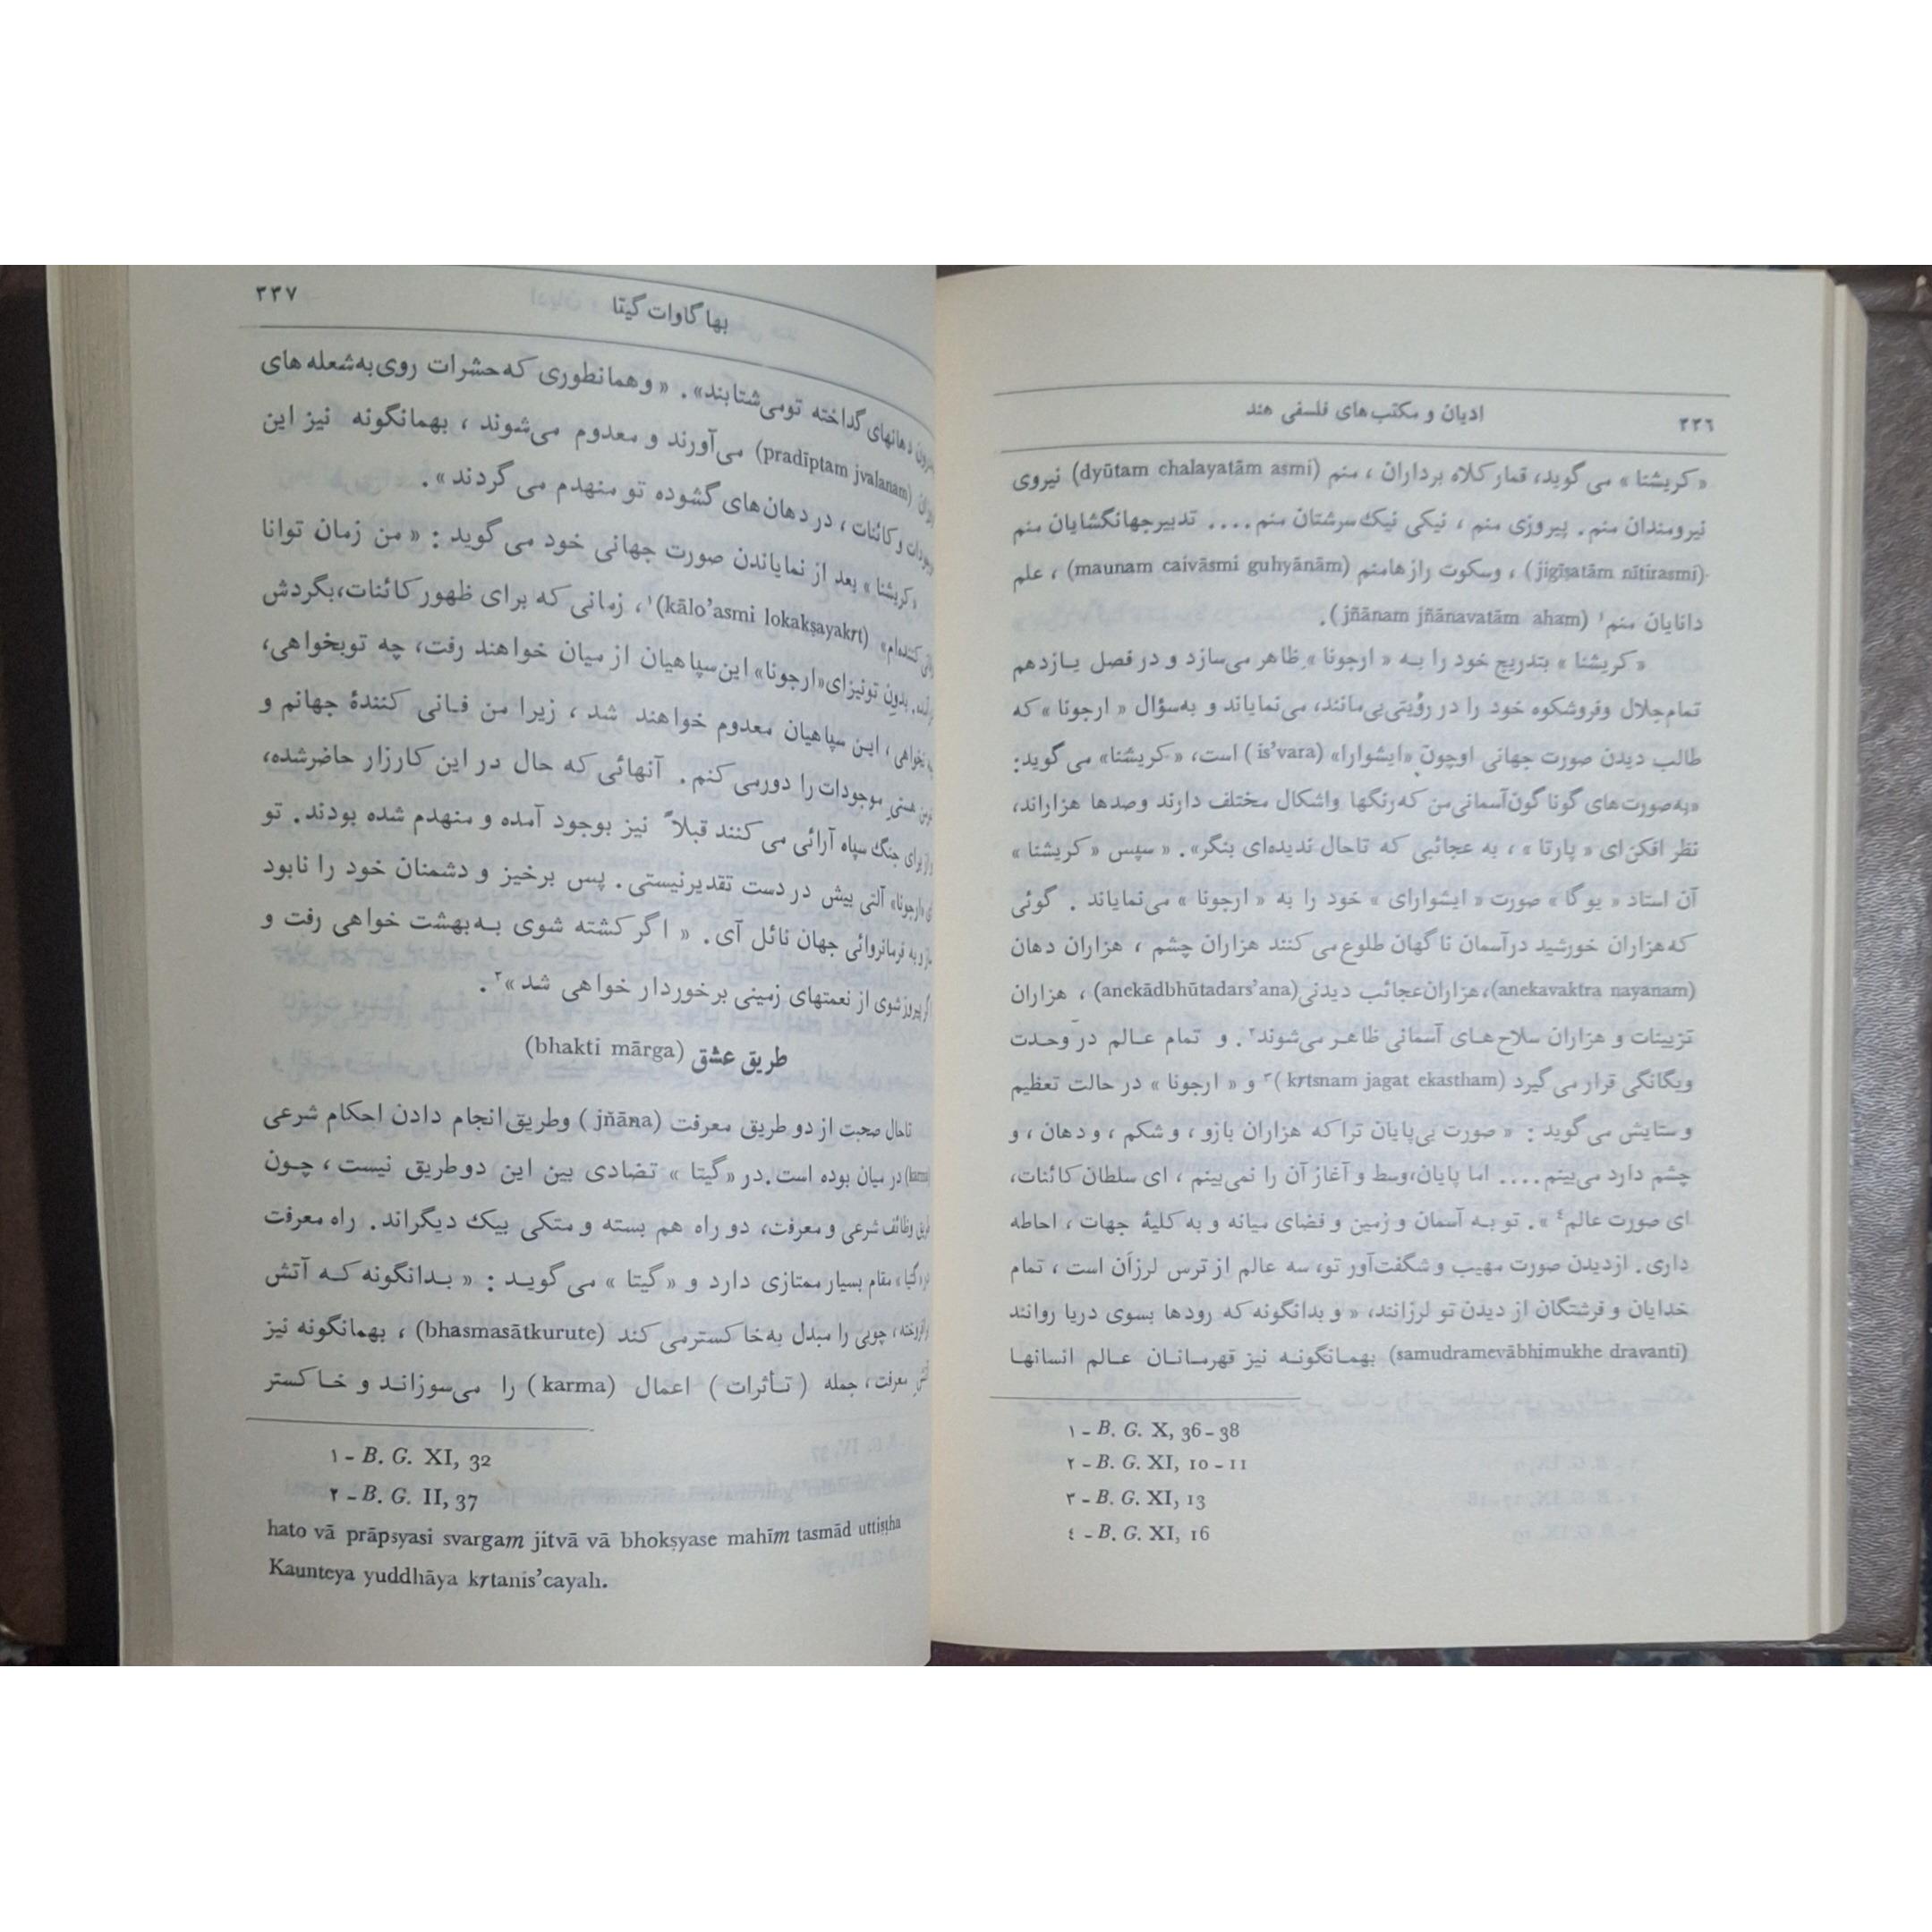 ۳۳۶
ادیان و مکتب‌های فلسفی هند
« کریشنا » می گوید، قمار کلاه برداران ، منم (dyūtam chalayatām asmi) نیروی
نیرومندان منم . پیروزی منم ، نیکی نیک سرشتان منم .... تدبیرجهانگشایان منم
(jigīṣatām nītirasmi) ، وسکوت رازهامنم (maunam caivāsmi guhyānām) ، علم
دانایان منم¹ (jñānam jñānavatām aham).
« کریشنا » بتدریج خود را بـه « ارجونا » ظاهر می‌سازد و در فصل یـازدهم
تمام‌جلال وفروشکوه خود را در رؤیتی‌بی‌مانند، می‌نمایاند و به‌سؤال « ارجونا » که
طالب دیدن صورت جهانی اوچون «ایشوارا» (is'vara) است، « کریشنا» می گوید:
«به‌صورت‌های گوناگون‌آسمانی‌من که‌رنگها واشکال مختلف دارند وصدها هزاراند،
نظر افکن‌ای « پارتا » ، به عجائبی که تاحال ندیده‌ای بنگر» . « سپس « کریشنا »
آن استاد « یوگا » صورت « ایشوارای » خود را به « ارجونا » می‌نمایاند . گوئی
که‌هزاران خورشید درآسمان ناگهان طلوع‌می کنند هزاران چشم ، هزاران دهان
(anekavaktra nayanam)، هزاران‌عجائب دیدنی (anekādbhūtadars'ana) ، هزاران
تزیینات و هزاران سلاح‌هـای آسمانی ظاهـر می‌شوند² . و تمام عـالم در وحـدت
ویگانگی قرار می گیرد (kṛtsnam jagat ekastham)³ و « ارجونا » در حالت تعظیم
و ستایش می گوید : « صورت بی‌پایان ترا که هزاران بازو ، و شکم ، و دهان ، و
چشم دارد می‌بینم .... اما پایان،وسط و آغاز آن را نمی‌بینم ، ای سلطان کائنات،
ای صورت عالم⁴ » . تو بـه آسمان و زمین و فضای میانه و به کلیۀ جهات ، احاطه
داری . ازدیدن صورت مهیب و شگفت‌آور تو، سه عالم از ترس لرزان است ، تمام
خدایان و فرشتگان از دیدن تو لرزانند، « و بدانگونه که رودها بسوی دریا روانند
(samudramevābhimukhe dravanti) بهمـانگونـه نیز قهرمـانـان عـالم انسانهـا
۱ - B. G. X, 36-38
۲ - B. G. XI, 10-11
۳ - B. G. XI, 13
٤ - B. G. XI, 16
بهاگاوات گیتا
۳۳۷
دهانهای گداخته تومی‌شتابند» . « و همانطوری که‌حشرات روی‌به‌شعله‌های
(pradīptam jvalanam) می‌آورند و معدوم می‌شوند ، بهمانگونه نیز این
و کائنات ، در دهان‌های گشوده تو منهدم می گردند » .
« کریشنا » بعد از نمایاندن صورت جهانی خود می گوید : « من زمان توانا
کننده‌ام» (kālo'asmi lokakṣayakṛt)¹ ، زمانی که برای ظهور کائنات،بگردش
بدون تونیزای«ارجونا» این‌سپاهیان از میان خواهند رفت، چه توبخواهی،
نخواهی ، ایـن سپاهیان معدوم خواهند شد ، زیرا من فـانی کنندۀ جهانم و
هستی موجودات را دورمی کنم . آنهائی که حال در این کارزار حاضرشده،
برای جنگ سپاه آرائی می کنند قبلاً نیز بوجود آمده و منهدم شده بودند . تو
«ارجونا» آلتی بیش در دست تقدیرنیستی . پس برخیز و دشمنان خود را نابود
و به فرمانروائی جهان نائل آی . « اگر کشته شوی بـه‌بهشت خواهی رفت و
پیروز شوی از نعمتهای زمینی برخوردار خواهی شد »² .
طریق عشق (bhakti mārga)
تاحال صحبت از دو طریق معرفت (jñāna) وطریق انجام دادن احکام شرعی
(karma) در میان بوده است . در « گیتا » تضادی بین این دوطریق نیست ، چـون
طریق وظائف شرعی و معرفت، دو راه هم بسته و متکی بیک دیگراند . راه معرفت
مقام بسیار ممتازی دارد و « گیتا » می گویـد : « بـدانگونه کـه آتش
چوبی را مبدل به‌خاکسترمی کند (bhasmasātkurute) ، بهمانگونه نیز
معرفت ، جمله ( تـأثرات ) اعمال (karma) را می‌سوزانـد و خـا کستر
۱ - B. G. XI, 32
۲ - B. G. II, 37
hato vā prāpsyasi svargam jitvā vā bhokṣyase mahīm tasmād uttiṣṭha
Kaunteya yuddhāya kṛtanis'cayah.